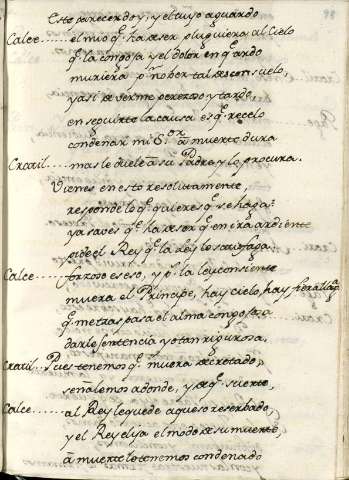 Esto parecer doy, y el tuyo aguardo
Calce..... el mio q̃ ha de ser pluguiera al Cielo
q̃ la congoja y el dolor en q̃ ardo
muriera p̃ no ber tal desconsuelo,
y asi de serme perezoso y tardo,
en seguirte la causa es q̃ recelo
condenar mi S.or a muerte dura
Cratil..... mas le duele a su Padre y lo procura.
Vienes en esto resolutamente,
responde lo q̃ quieres q̃ se haga:
ya saves q̃ ha de ser q̃ en ira ardiente
pide el Rey q̃ la ley se satisfaga
Calce...... forzoso es eso, y q̃ la ley consiente
muera el Principe, hay cielo, hay fiera llaga
q̃ me traspasa el alma congojosa
darle sentencia yo tan rigurosa.
Cratil... Pues tenemos q̃ muera decretado,
señalemos adonde, y de q̃ suerte,
Calce...... al Rey le quede aqueso reserbado,
y el Rey elija el modo de su muerte,
a muerte lo tenemos condenado
98